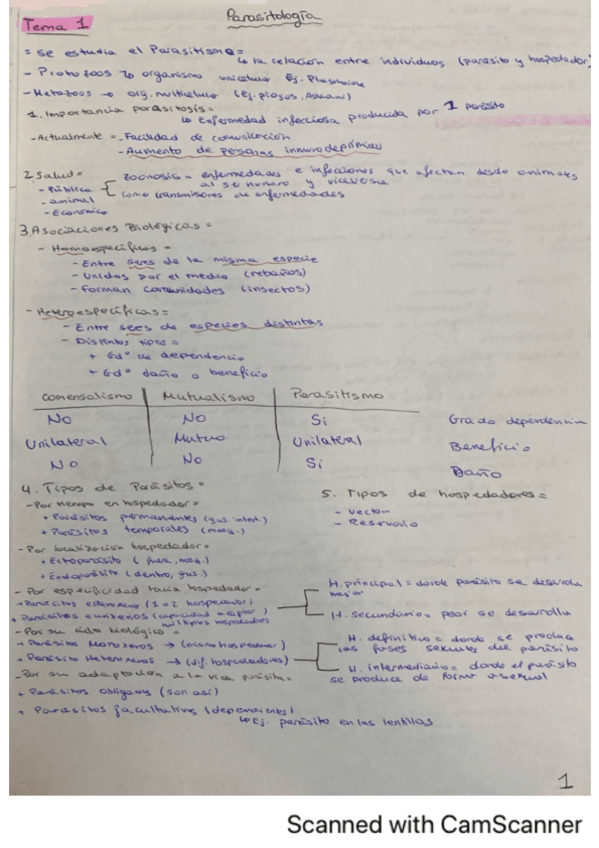 Parasitología
Tema 1
= Se estudia el Parasitismo =
↳ la relación entre individuos (parásito y hospedador)
- Protozoos → organismo unicelular Ej.
- Metazoos → org. multicelular (Ej. piojos, )
1. Importancia parasitosis =
↳ Enfermedad infecciosa producida por 1 parásito
- Actualmente = - Facilidad de comunicación
- Aumento de personas inmunodeprimidas
2. Salud =
- Pública
- animal
- Económico
zoonosis = enfermedades e infecciones que afectan desde animales
al ser humano y viceversa
como transmisores de enfermedades
3. Asociaciones Biológicas =
- Homoespecíficas =
- Entre seres de la misma especie
- Unidos por el medio (rebaños)
- Forman comunidades (insectos)
- Heteroespecíficas =
- Entre seres de especies distintas
- Distintos tipos =
+ Gdº de dependencia
+ Gdº daño o beneficio
Comensalismo | Mutualismo | Parasitismo
No | No | Si Grado dependencia
Unilateral | Mutuo | Unilateral Beneficio
No | No | Si Daño
4. Tipos de Parásitos =
- Por tiempo en hospedador =
+ Parásitos permanentes (gus. intest.)
+ Parásitos temporales (mosq.)
- Por localización hospedador =
+ Ectoparásito ( , mosq.)
+ Endoparásito (dentro, gus.)
- Por especificidad hacia hospedador =
+ Parásitos estenoxenos (1 o 2 hospedador)
+ Parásitos eurixenos (capacidad adaptar)
múltiples hospedadores
- Por su ciclo biológico =
+ Parásitos Monoxenos → (mismo hospedador)
+ Parásito Heteroxenos → (dif. hospedadores)
- Por su adaptación a la vida parásita =
+ Parásitos obligados (son así)
+ Parásitos facultativos (dependientes)
↳ Ej. parásito en las lentillas
5. Tipos de hospedadores =
- Vector
- Reservorio
H. principal = donde parásito se desarrolla
mejor
H. secundario = peor se desarrolla
H. definitivo = donde se produce
las fases sexuales del parásito
H. intermediario = donde el parásito
se produce de forma asexual
1
Scanned with CamScanner